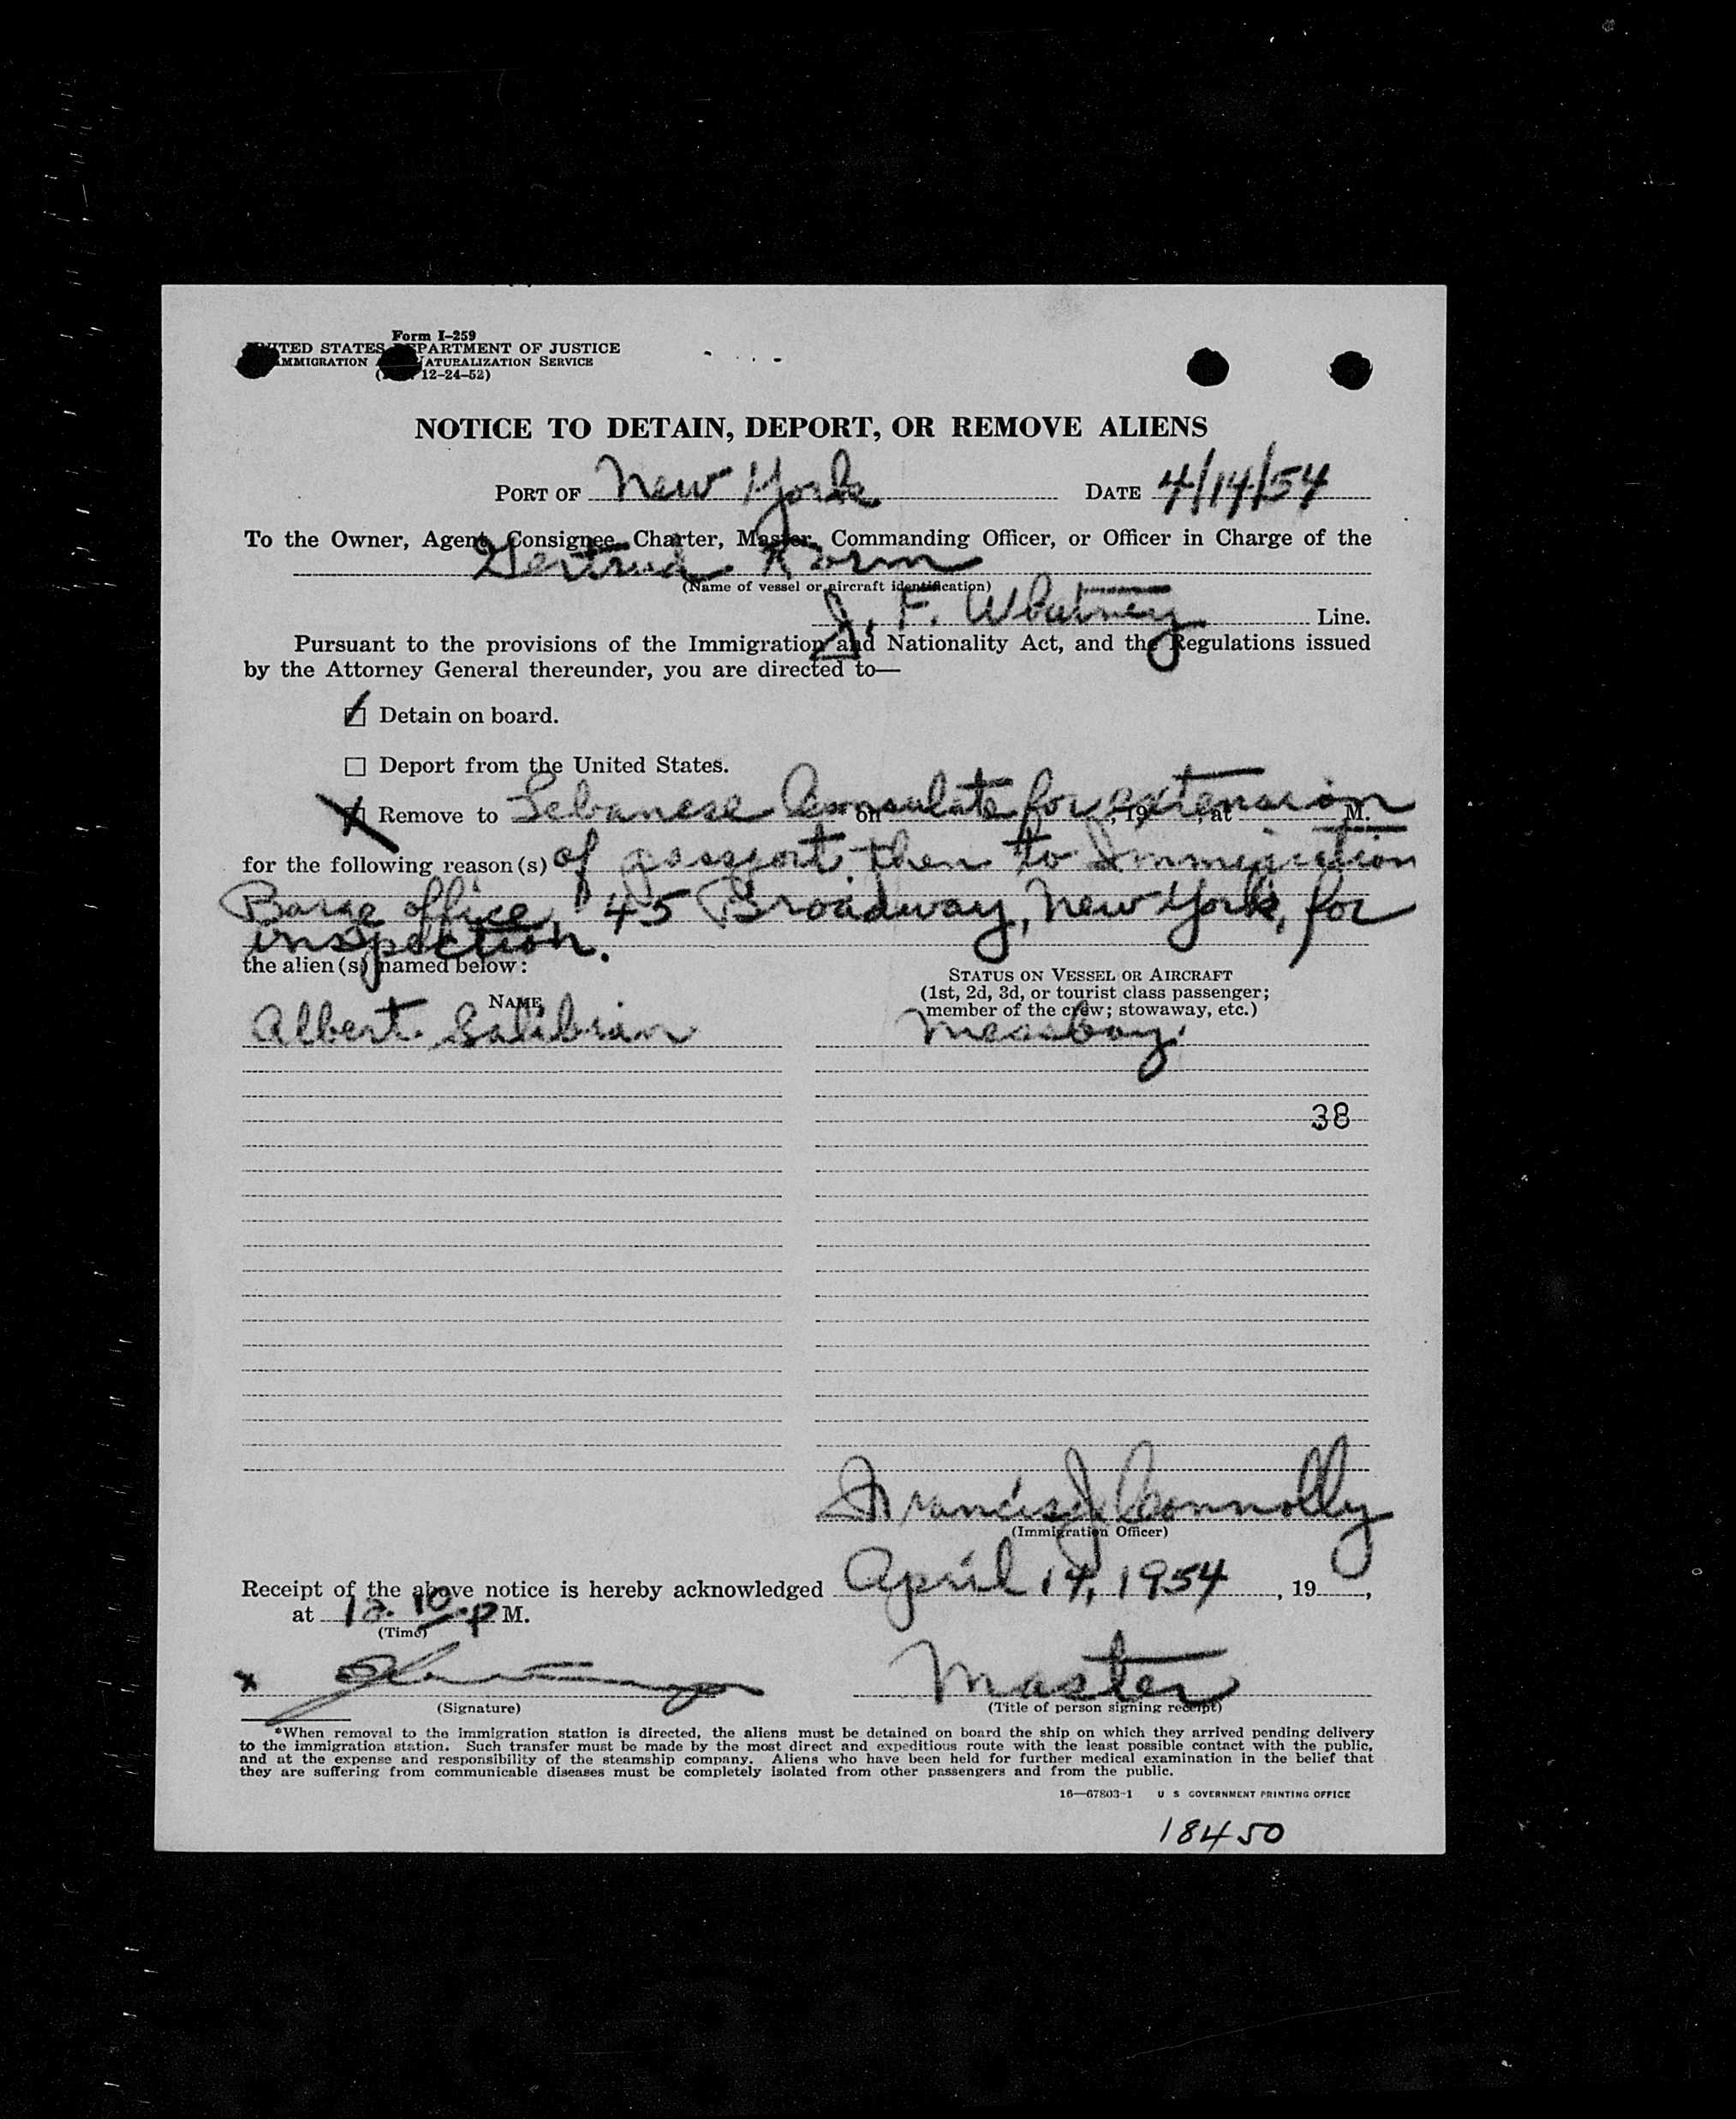 Form I-259
UNITED STATES DEPARTMENT OF JUSTICE
IMMIGRATION NATURALIZATION SERVICE
12-24-52)
NOTICE TO DETAIN, DEPORT, OR REMOVE ALIENS
PORT OF New York DATE 4/14/54
To the Owner, Agent, Consignee, Charter, Master, Commanding Officer, or Officer in Charge of the
Gertrud Korm
(Name of vessel or aircraft identification)
J. F. Whitney Line.
Pursuant to the provisions of the Immigration and Nationality Act, and the Regulations issued
by the Attorney General thereunder, you are directed to—
☑ Detain on board.
☐ Deport from the United States.
☑ Remove to Lebanese Consulate for extension on , 19 , at M.
for the following reason(s) of passport, then to Immigration
Barge office, 45 Broadway, New York, for
inspection.
the alien(s) named below:
NAME
STATUS ON VESSEL OR AIRCRAFT
(1st, 2d, 3d, or tourist class passenger;
member of the crew; stowaway, etc.)
Albert Salibian messboy.
38
Francis J. Connolly
(Immigration Officer)
Receipt of the above notice is hereby acknowledged April 14, 1954, 19 ,
at 12.10.p M.
(Time)
x Master
(Signature) (Title of person signing receipt)
*When removal to the immigration station is directed, the aliens must be detained on board the ship on which they arrived pending delivery
to the immigration station. Such transfer must be made by the most direct and expeditious route with the least possible contact with the public,
and at the expense and responsibility of the steamship company. Aliens who have been held for further medical examination in the belief that
they are suffering from communicable diseases must be completely isolated from other passengers and from the public.
16—67803-1 U S GOVERNMENT PRINTING OFFICE
18450